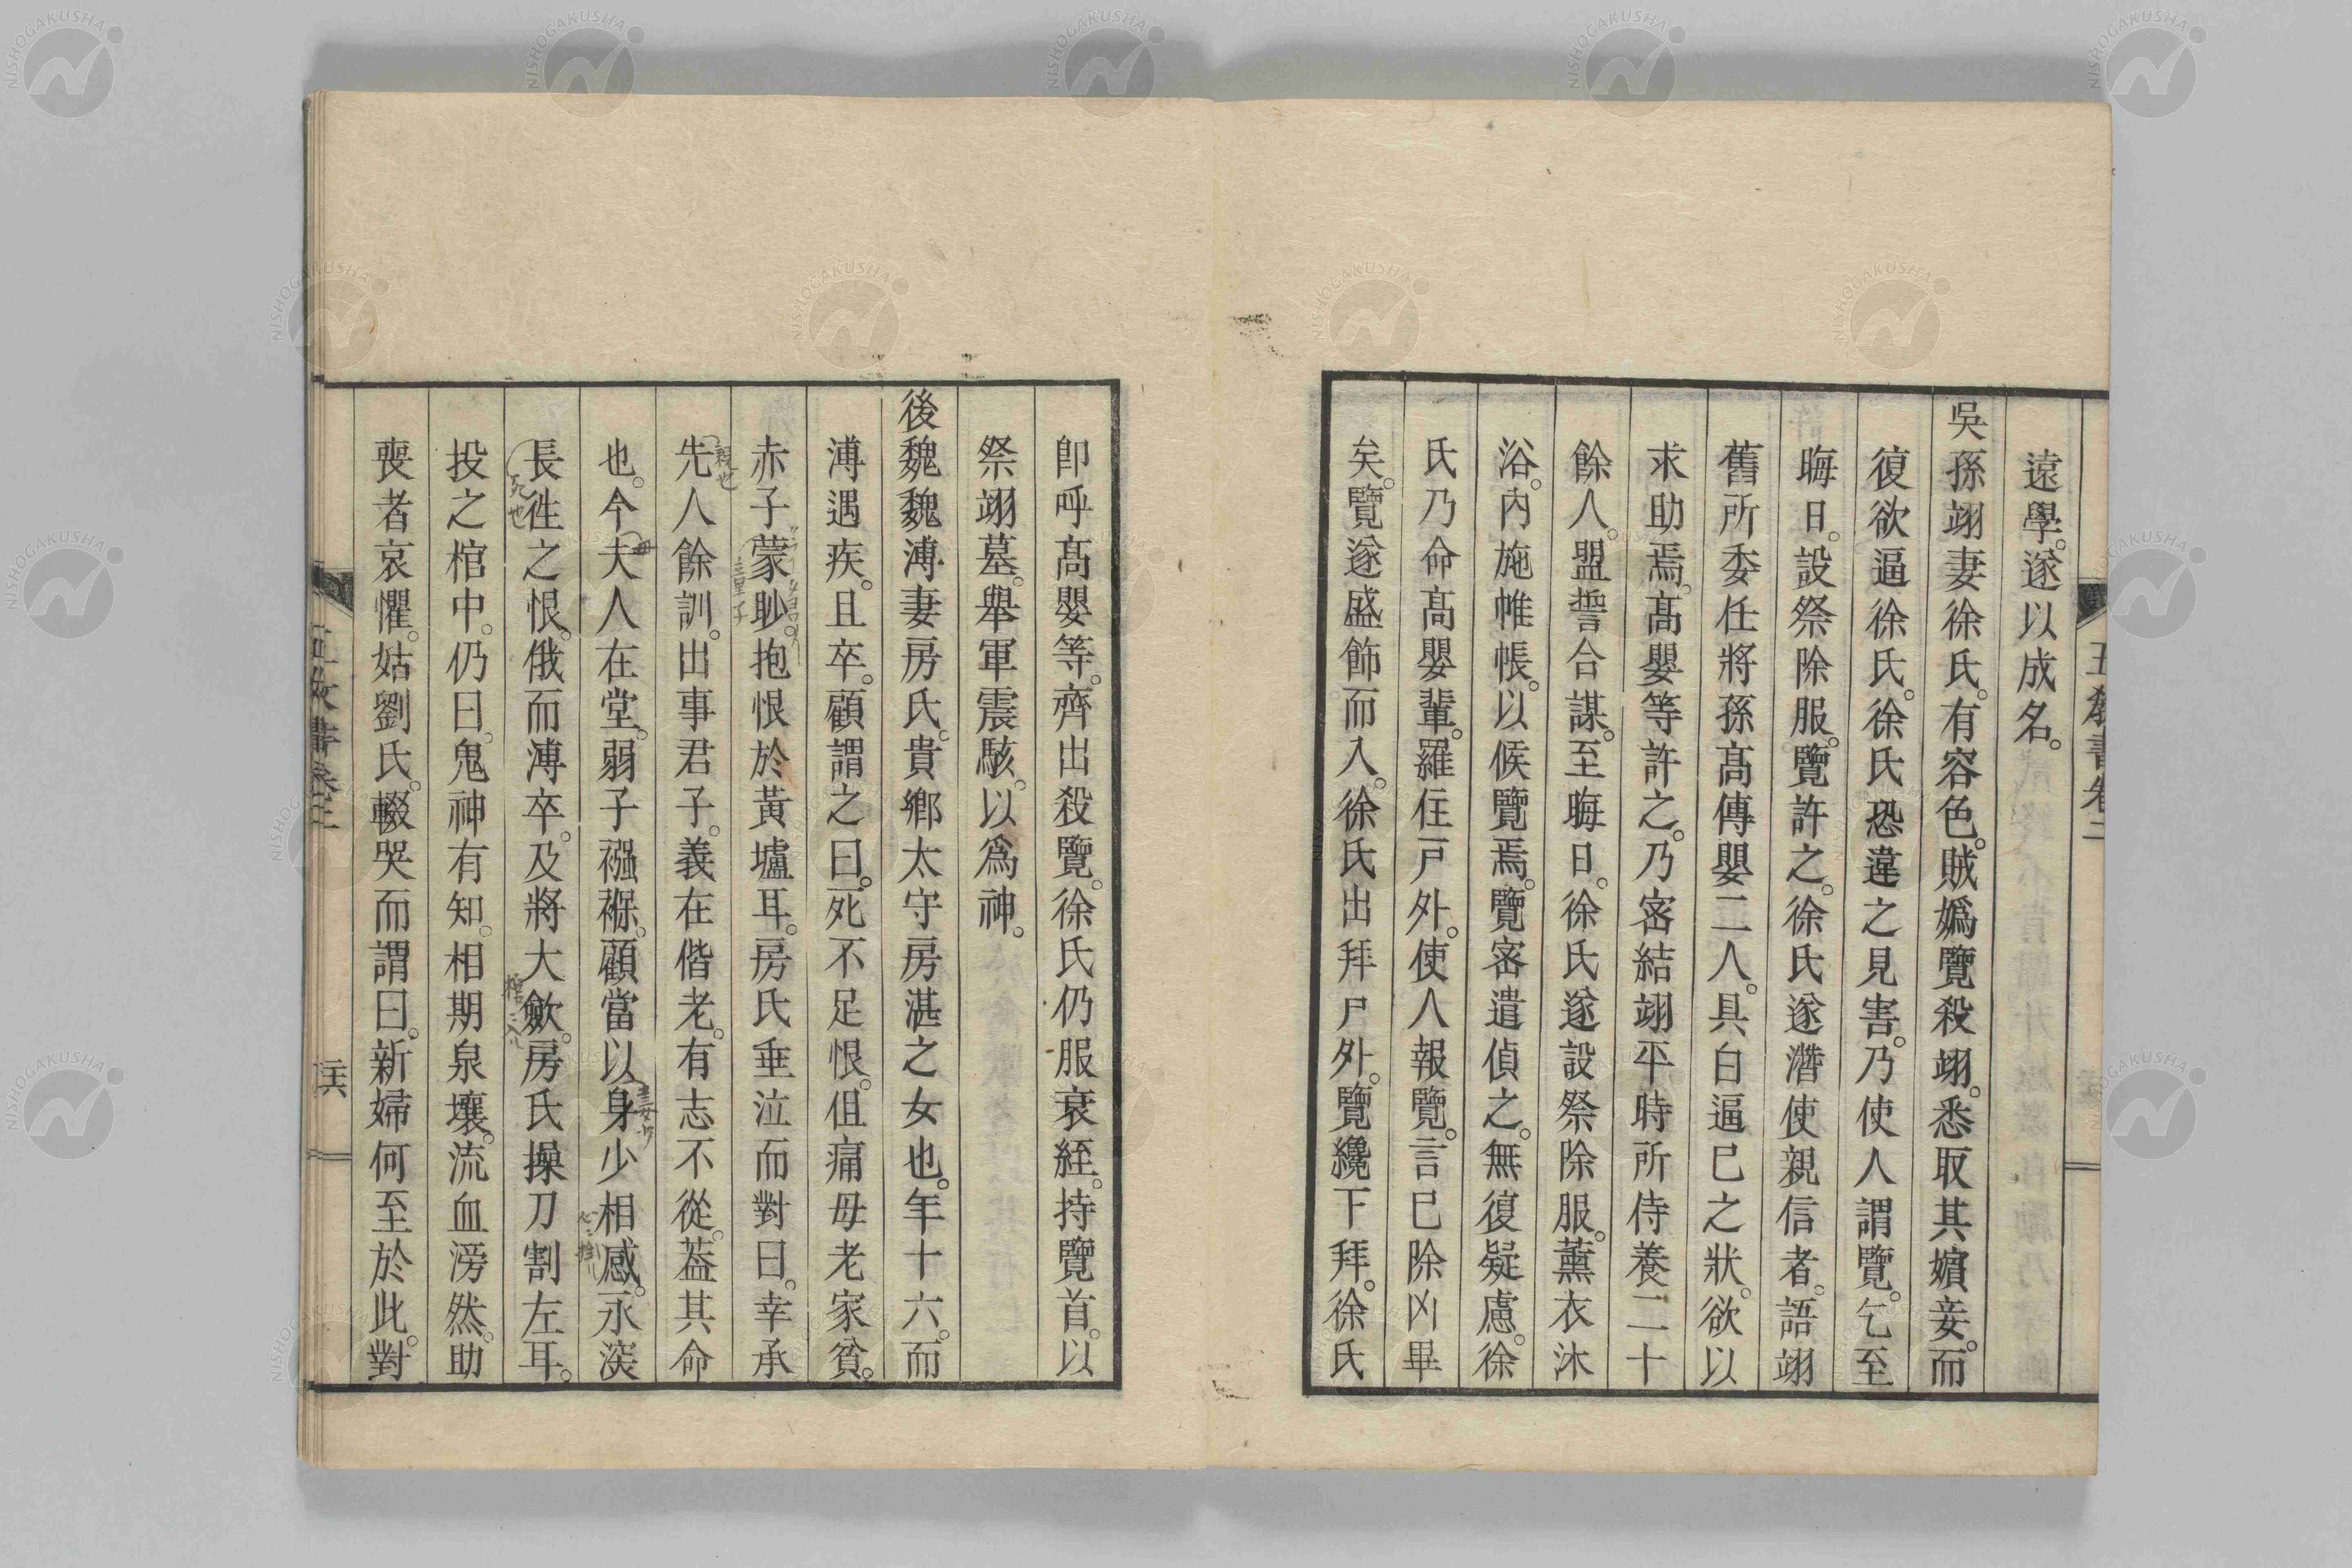 五教書卷二
遠學。遂以成名。
吳孫翊妻徐氏。有容色。賊嬀覽殺翊。悉取其嬪妾。而
復欲逼徐氏。徐氏恐違之見害。乃使人謂覽。乞至
晦日。設祭除服。覽許之。徐氏遂潛使親信者。語翊
舊所委任將孫高傳嬰二人。具白逼已之狀。欲以
求助焉。髙嬰等許之。乃密結翊平時所侍養二十
餘人。盟誓合謀。至晦日。徐氏遂設祭除服。薰衣沐
浴。內施帷帳。以候覽焉。覽密遣偵之。無復疑慮。徐
氏乃命髙嬰輩。羅住戸外。使人報覽。言已除凶畢
矣。覽遂盛飾而入。徐氏出拜戸外。覽纔下拜。徐氏
卽呼髙嬰等。齊出殺覽。徐氏仍服衰絰。持覽首。以
祭翊墓。舉軍震駭。以爲神。
後魏魏溥妻房氏。貴鄉太守房湛之女也。年十六。而
溥遇疾。且卒。顧謂之曰。死不足恨。但痛母老家貧。
赤子蒙眇。抱恨於黃墟耳。房氏垂泣而對曰。幸承
先人餘訓。出事君子。義在偕老。有志不從。葢其命
也。今夫人在堂。弱子襁褓。顧當以身少相感。永深
長徃之恨。俄而溥卒。及將大歛。房氏操刀割左耳。
投之棺中。仍曰。鬼神有知。相期泉壤。流血滂然。助
喪者哀懼。姑劉氏。輟哭而謂曰。新婦何至於此。對
五敎書卷三
二六
NISHOGAKUSHA